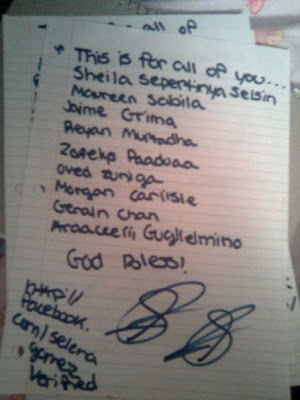 all of
* This is for all of you...
Sheila Sepertinya Selsin
Maureen Sabila
Jaime Grima
Reyan Murtadha
Paaduaa
Oved Zuniga
Morgan Carlisle
Geraln Chan
Araaceelii Guglielmino
God Bless!
http://
facebook.
com/selena
gomez
verified